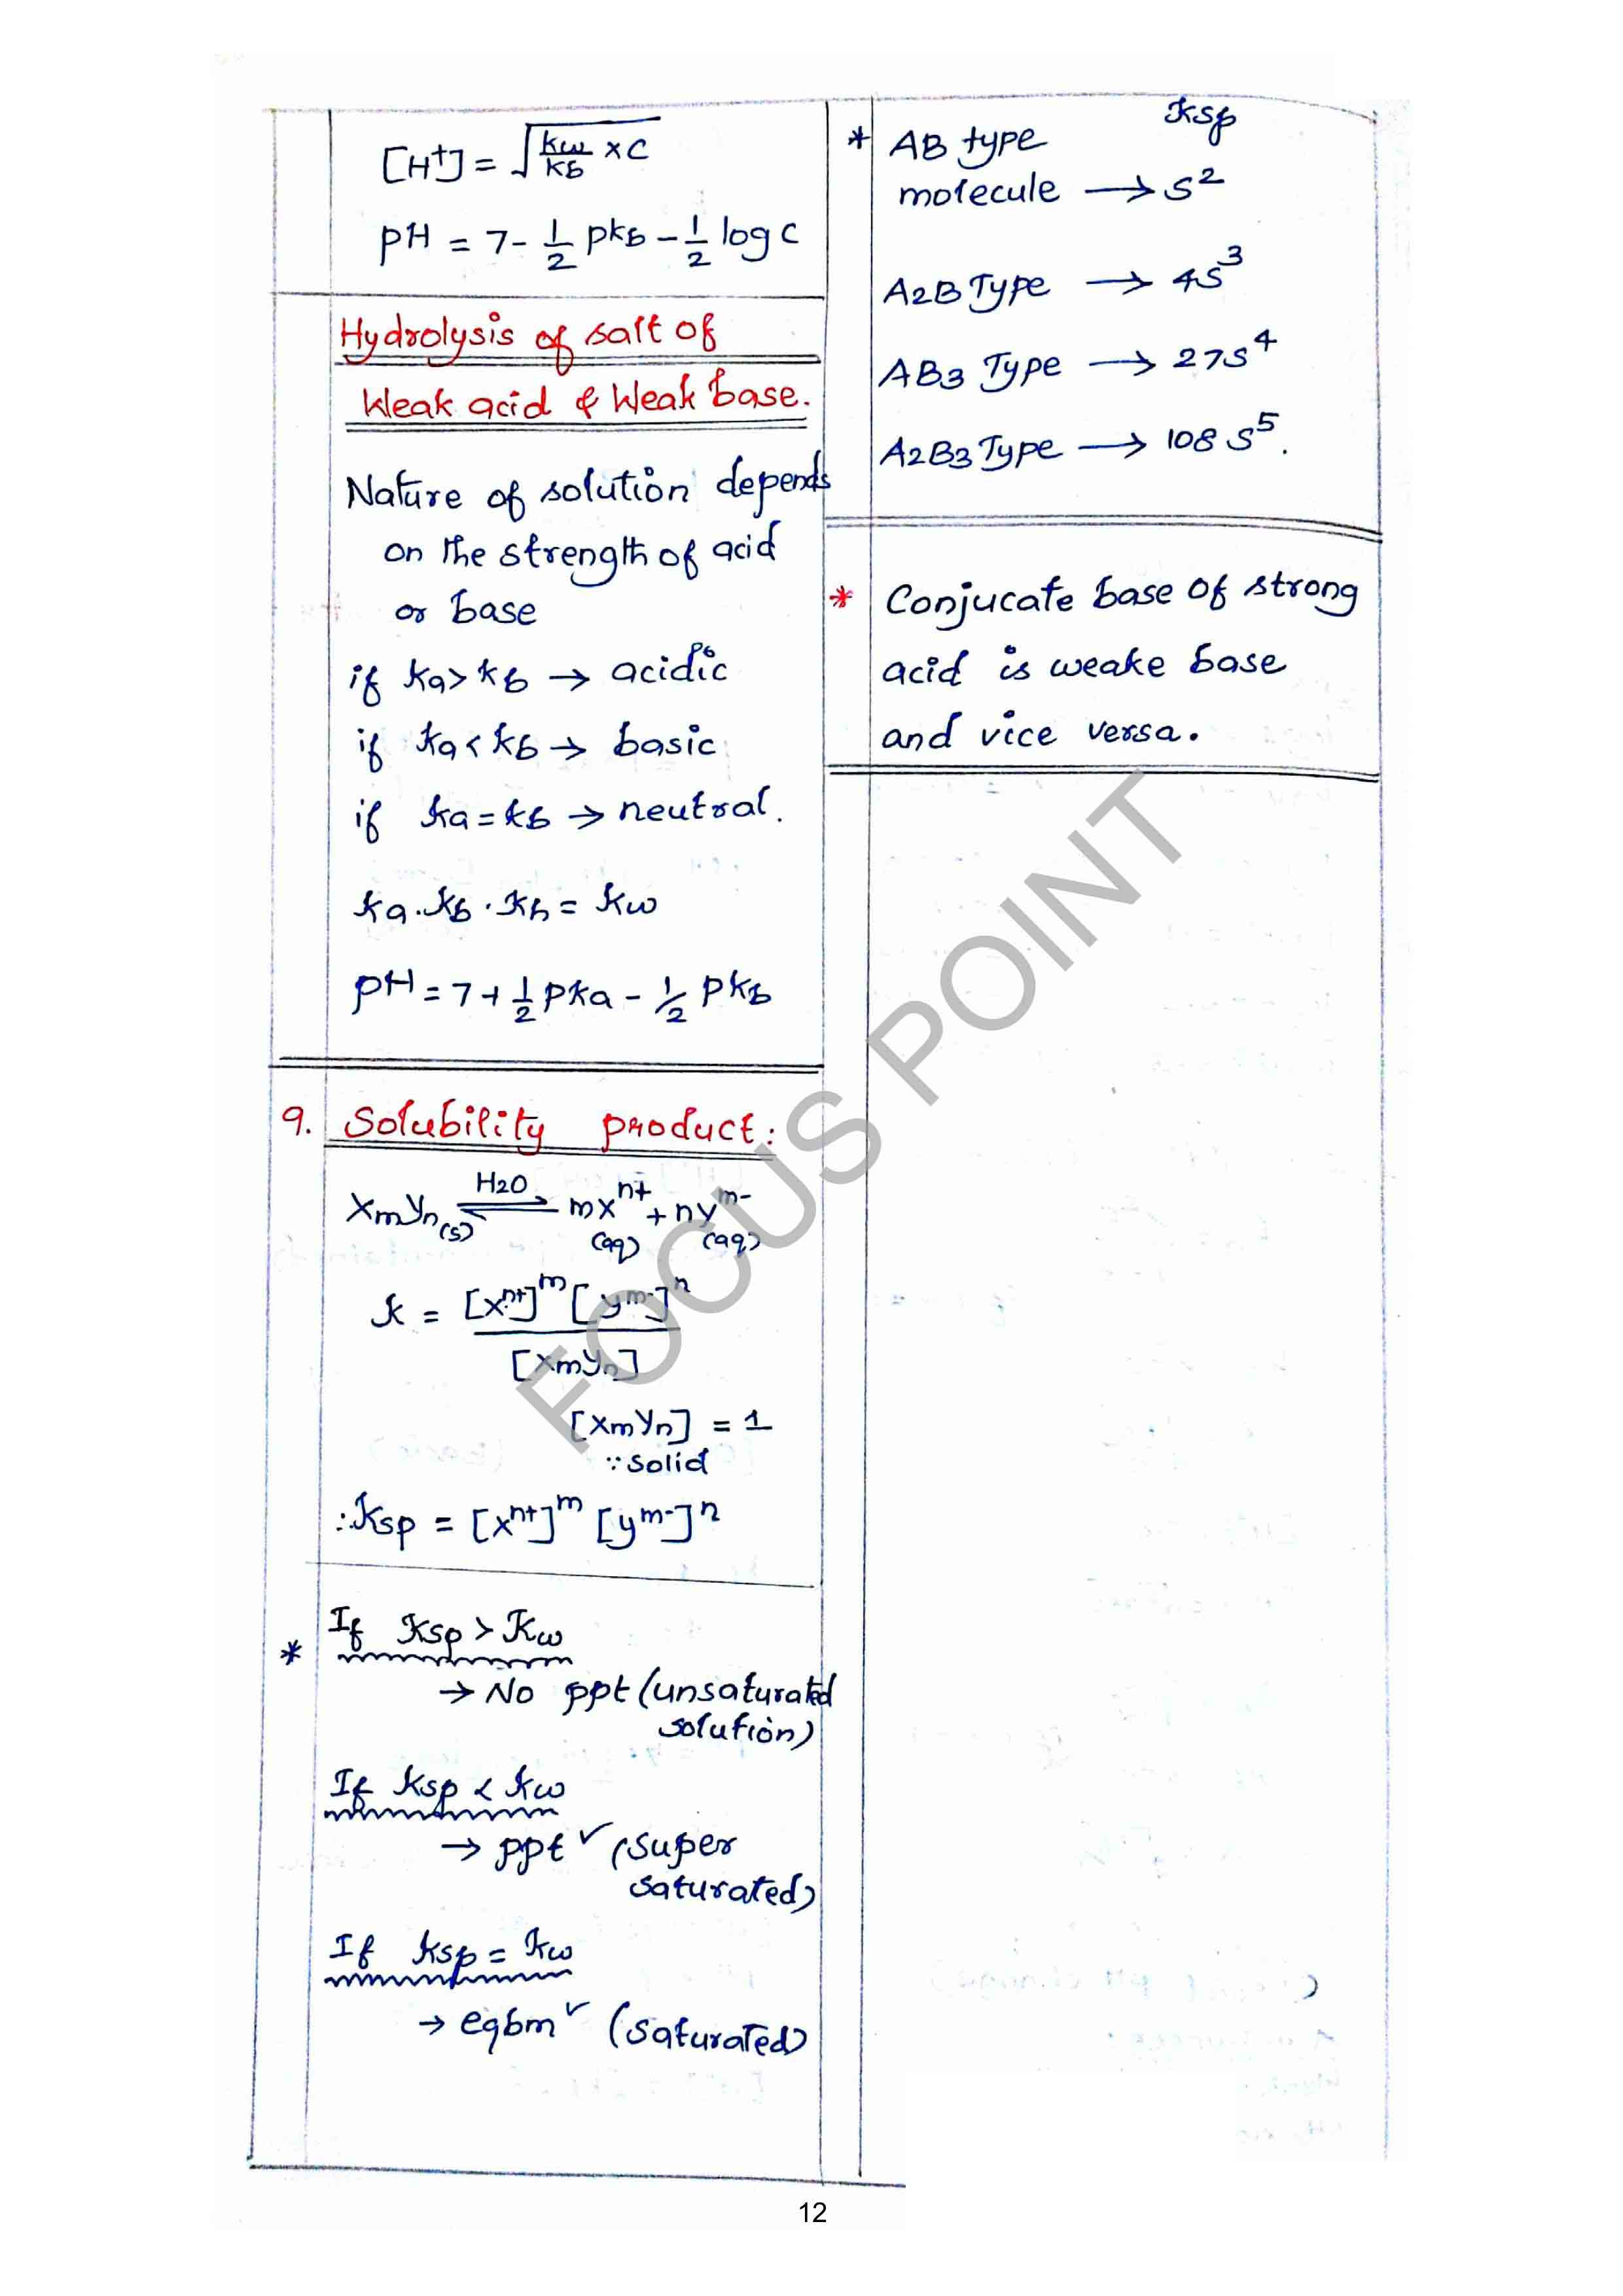 [H⁺] = √(kw/kb × C)
pH = 7 - 1/2 pkb - 1/2 log C
Hydrolysis of salt of
Weak acid & Weak base.
Nature of solution depends
on the strength of acid
or base
if ka > kb → acidic
if ka < kb → basic
if ka = kb → neutral.
ka . kb . kh = kw
pH = 7 + 1/2 pka - 1/2 pkb
9. Solubility product:
XmYn(s) ⇌ mXⁿ⁺ + nYᵐ⁻
H2O
(aq) (aq)
k = [Xⁿ⁺]ᵐ [Yᵐ⁻]ⁿ
[XmYn]
[XmYn] = 1
∵ solid
∴ Ksp = [Xⁿ⁺]ᵐ [Yᵐ⁻]ⁿ
* If Ksp > Kw
→ No ppt (unsaturated
solution)
If Ksp < Kw
→ ppt ✓ (super
saturated)
If Ksp = Kw
→ eqbm ✓ (saturated)
Ksp
* AB type
molecule → S²
A2B Type → 4S³
AB3 Type → 27S⁴
A2B3 Type → 108 S⁵.
* Conjucate base of strong
acid is weake base
and vice versa.
FOCUS POINT
12